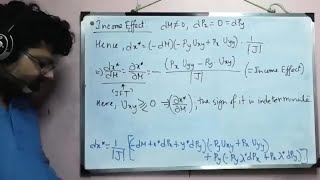 Income Effect dM≠0, dPx = 0 = dPy
Hence, dx* = (-dM)(-Py Uxy + Px Uyy) 1/|J|
⇒ ∂x*/∂M = - (Px Uyy - Py Uxy)/|J| (= Income Effect)
Here, Uxy ⋛ 0 ⇒ (∂x*/∂M), the sign of it is indeterminate
dx* = 1/|J| [(-dM + x*dPx + y*dPy)(-Py Uxy + Px Uyy)
+ Py(-Py)(λ*dPx + Px)(λ*dPy)]